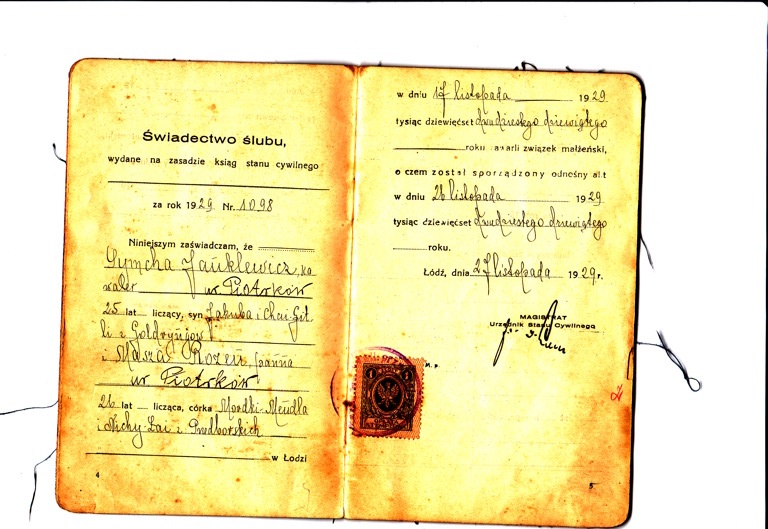 Świadectwo ślubu,
wydane na zasadzie ksiąg stanu cywilnego
za rok 1929 Nr. 1098
Niniejszym zaświadczam, że
Symcha Janklewicz, ka
waler ur. Piotrków
25 lat liczący, syn Jakuba i Chai-Git
li z Goldryngów
i Masza Rozen, panna
ur. Piotrków
26 lat licząca, córka Mordki-Mendla
i Nichy-Łai z Przedborskich
w Łodzi
4
w dniu 17 listopada 1929
tysiąc dziewięćset dwudziestego dziewiątego
roku zawarli związek małżeński,
o czem został sporządzony odnośny akt
w dniu 26 listopada 1929
tysiąc dziewięćset dwudziestego dziewiątego
roku.
Łódź, dnia 27 listopada 1929 r.
MAGISTRAT
Urzędnik Stanu Cywilnego
M. P.
5